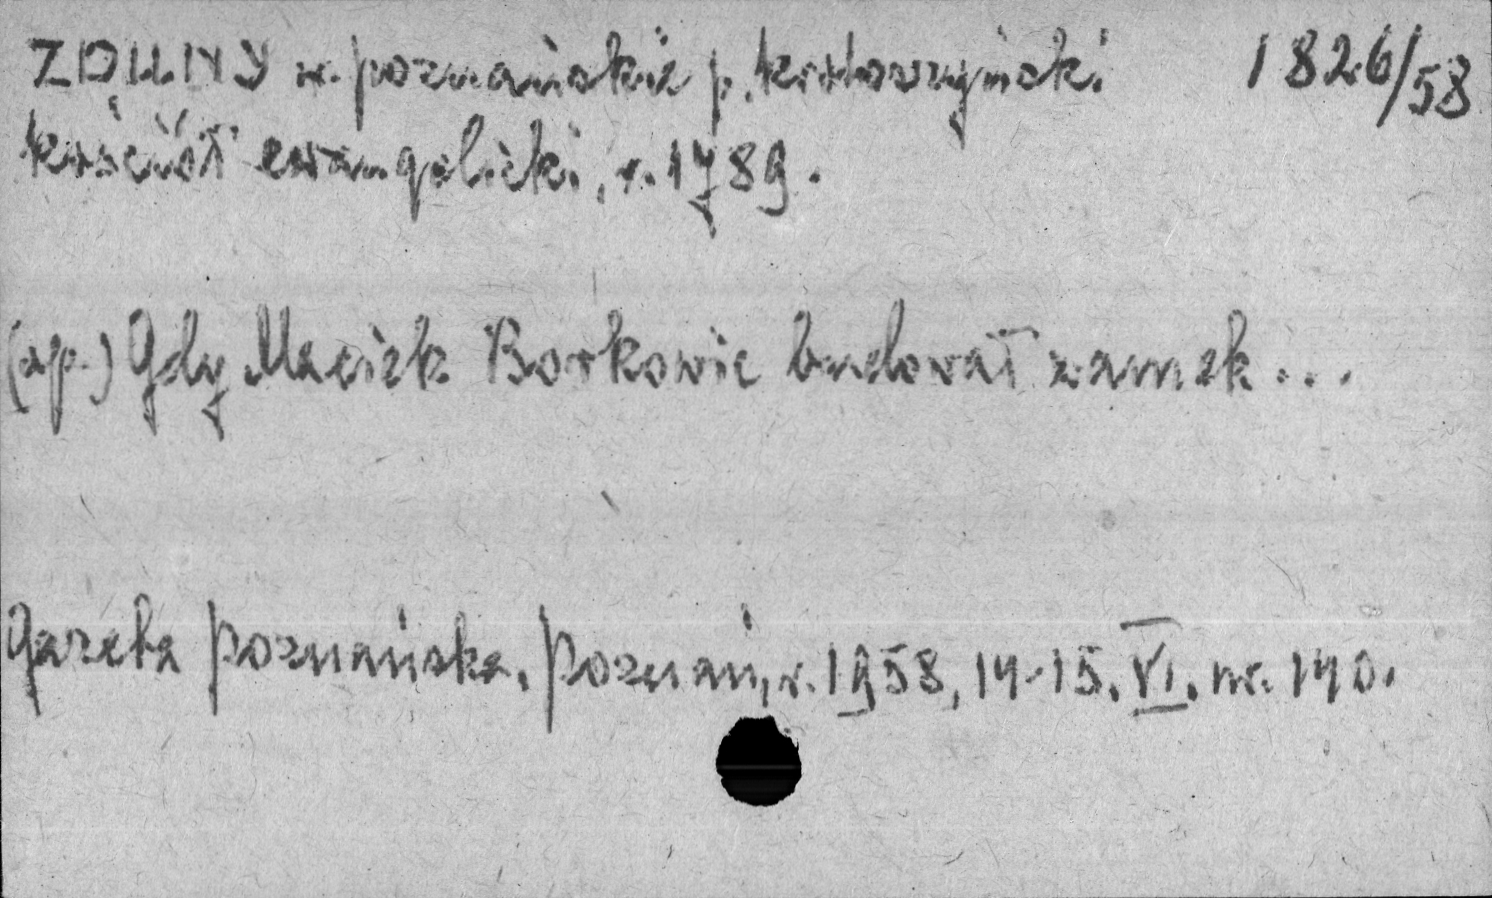 ZDUNY w. poznańskie p. krotoszyński 1826/58
kościół ewangelicki, r. 1789.
(ap.) Gdy Maciek Borkowic budował zamek...
Gazeta Poznańska, Poznań, r. 1958, 14-15. VI. nr. 140.